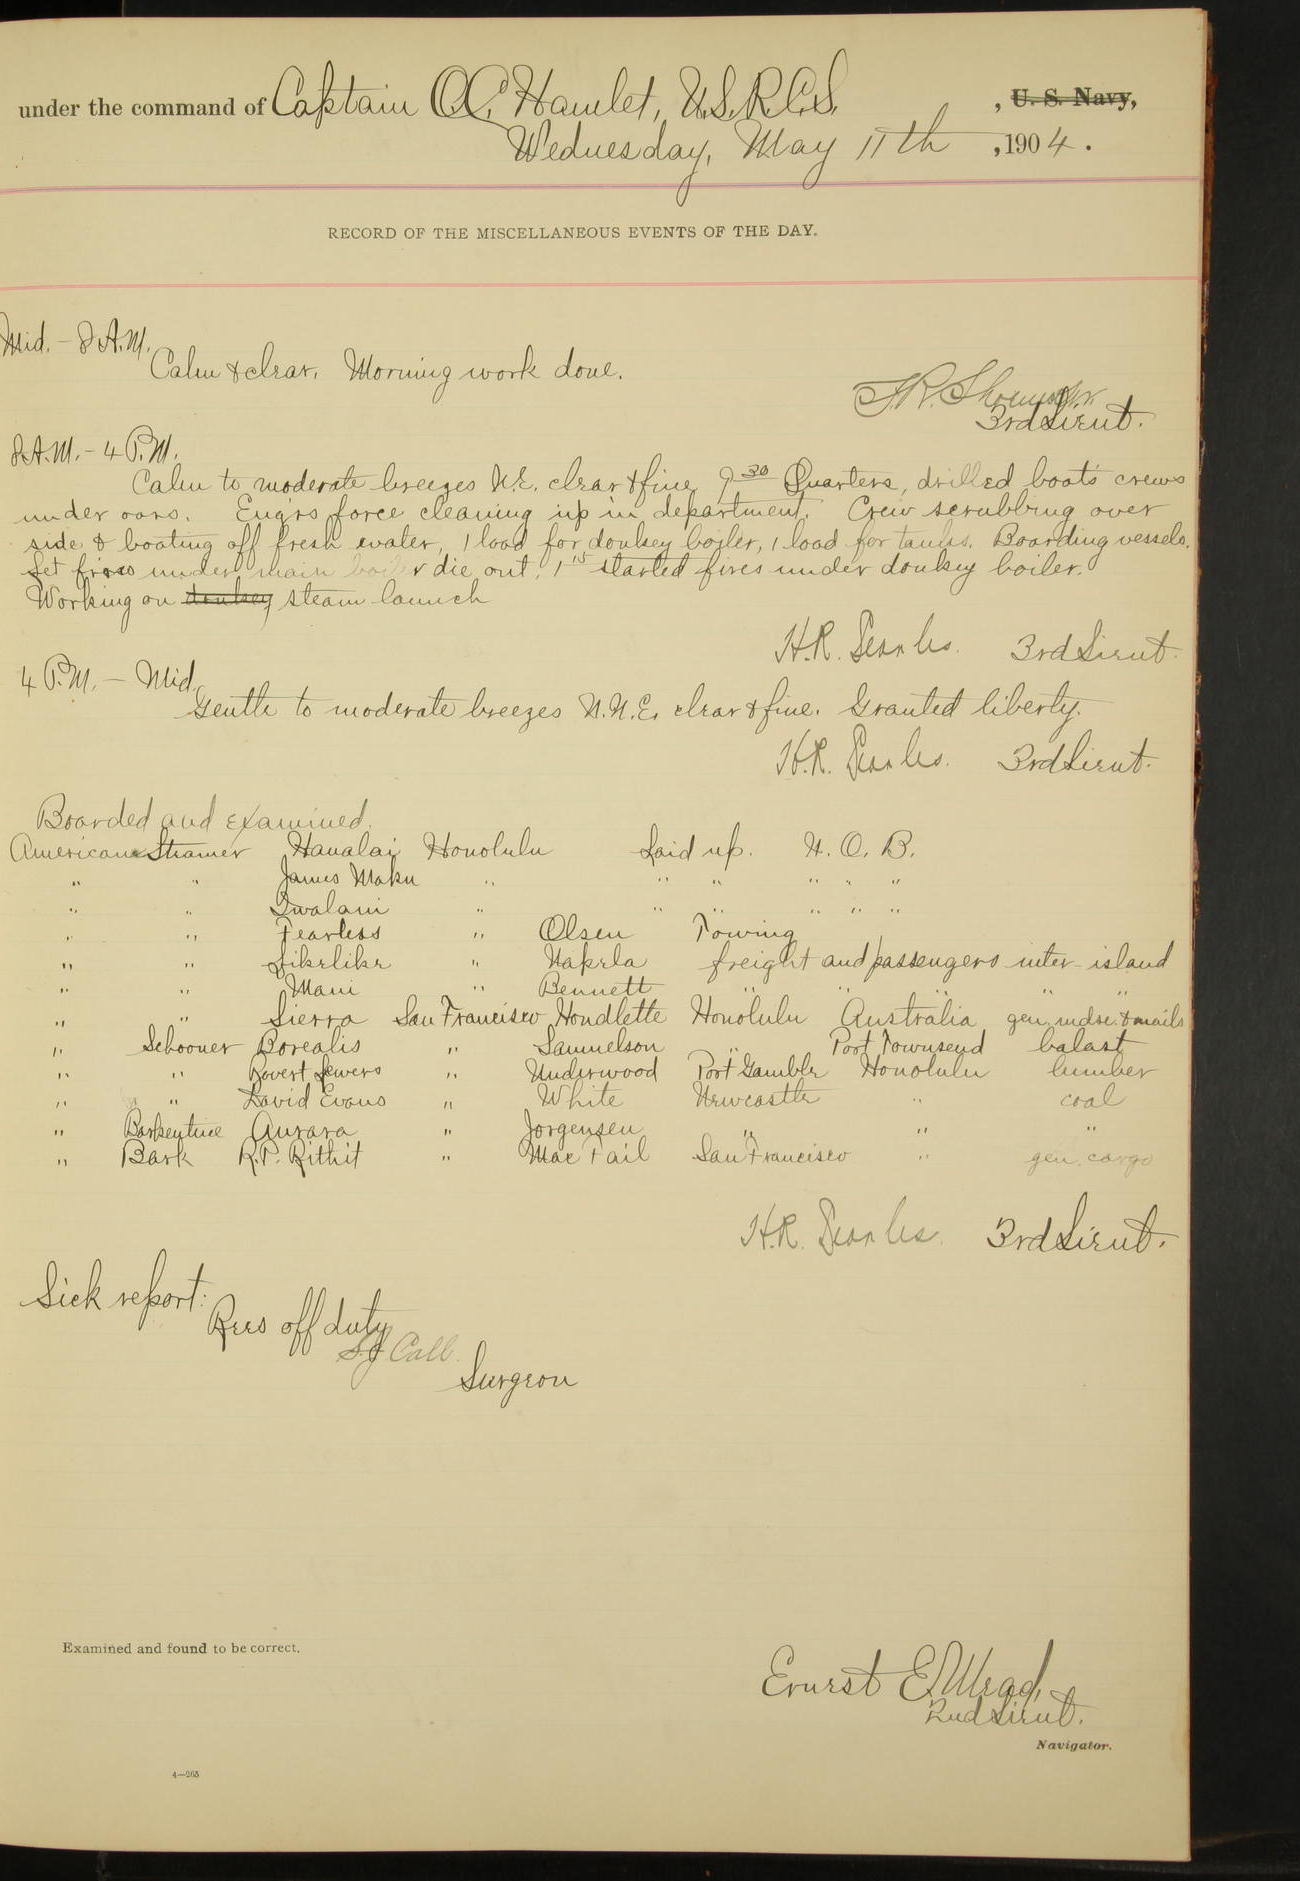 under the command of Captain O.C. Hamlet, U.S.R.C.S. , U. S. Navy,
Wednesday, May 11th , 1904.
RECORD OF THE MISCELLANEOUS EVENTS OF THE DAY.
Mid. - 8 A.M.
Calm & clear. Morning work done.
3rd Lieut.
8 A.M. - 4 P.M.
Calm to moderate breezes N.E. clear & fine 9 30 Quarters, drilled boats crews
under oars. Eng'rs force cleaning up in department. Crew scrubbing over
side & boating off fresh water, 1 load for donkey boiler, 1 load for tanks. Boarding vessels.
Let fires under main boiler die out. 1 15 started fires under donkey boiler.
Working on donkey steam launch
H.R. Searles. 3rd Lieut.
4 P.M. - Mid.
Gentle to moderate breezes N.N.E. clear & fine. Granted liberty.
H.R. Searles. 3rd Lieut.
Boarded and examined.
American Steamer Hanalai Honolulu Laid up. N. O. B.
" " James Maku " " " " " "
" " Iwalani " " " " " "
" " Fearless " Olsen Towing
" " Likelike " Nakela freight and passengers inter-island
" " Maui " Bennett " " " " "
" " Sierra San Francisco Houdlette Honolulu Australia gen. mdse. & mails
" Schooner Borealis " Samuelson " Port Townsend balast
" " Robert Lewers " Underwood Port Gamble Honolulu lumber
" " David Evans " White Newcastle " coal
" Barkentine Aurara " Jorgensen " " "
" Bark R.P. Rithit " Mac Fail San Francisco " gen. cargo
H.R. Searles. 3rd Lieut.
Sick report:
Rees off duty
S.J. Call.
Surgeon
Examined and found to be correct.
Ernest E. Mead,
2nd Lieut.
Navigator.
4—265